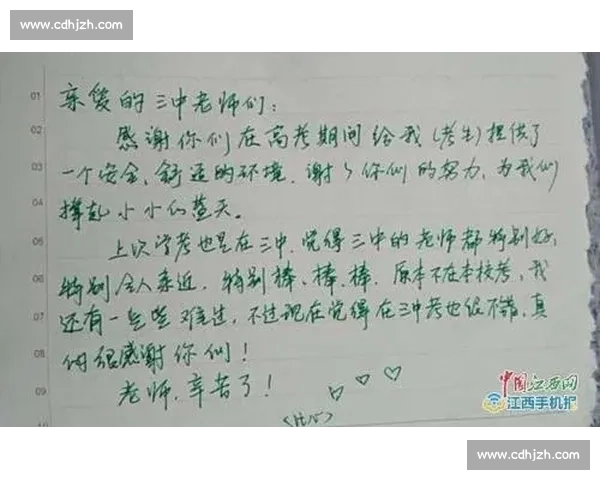 www.cdhjzh.com
01
亲爱的三中老师们：
02
感谢你们在高考期间给我(考生)提供了
03
一个安全、舒适的环境.谢谢你们的努力,为我们
04
撑起小小的蓝天。
05
上次学考也是在三中.觉得三中的老师都特别好,
06
特别令人亲近,特别棒、棒、棒.原本不在本校考,我
07
还有一些些难过,不过现在觉得在三中考也很不错,真
08
的很感谢你们!
09
老师,辛苦了!
♡ ♡ ♡
(比心)
中国江西网
江西手机报
www.cdhjzh.com